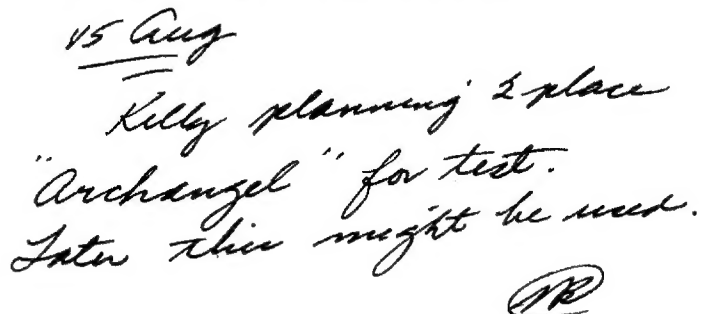 15 Aug
Kelly planning 2 place
"Archangel" for test.
Later this might be used.